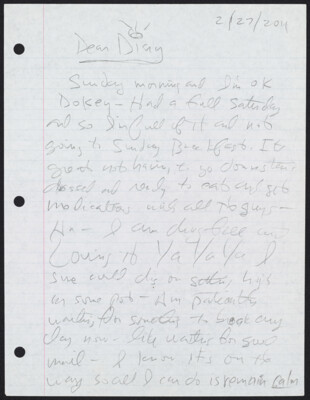 2/27/2011
Dear Diary
Sunday morning and I'm OK
Dokey - Had a full Saturday
and so I'm full of it and not
going to Sunday Breakfast. It's
great not having to go downstairs
dressed and ready to eat and get
medications with all
I am drug free and
Loving it Ya Ya Ya I
sure could on high
on some pot -
waiting for someday to break any
day now - like waiting for
mail - I know it's on the
way so all I can do is remain calm